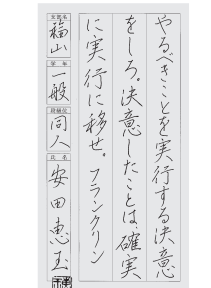 やるべきことを実行する決意
をしろ。決意したことは、確実
に実行に移せ。フランクリン
支部名
福山
学年
一般
段級位
同人
氏名
安田恵玉